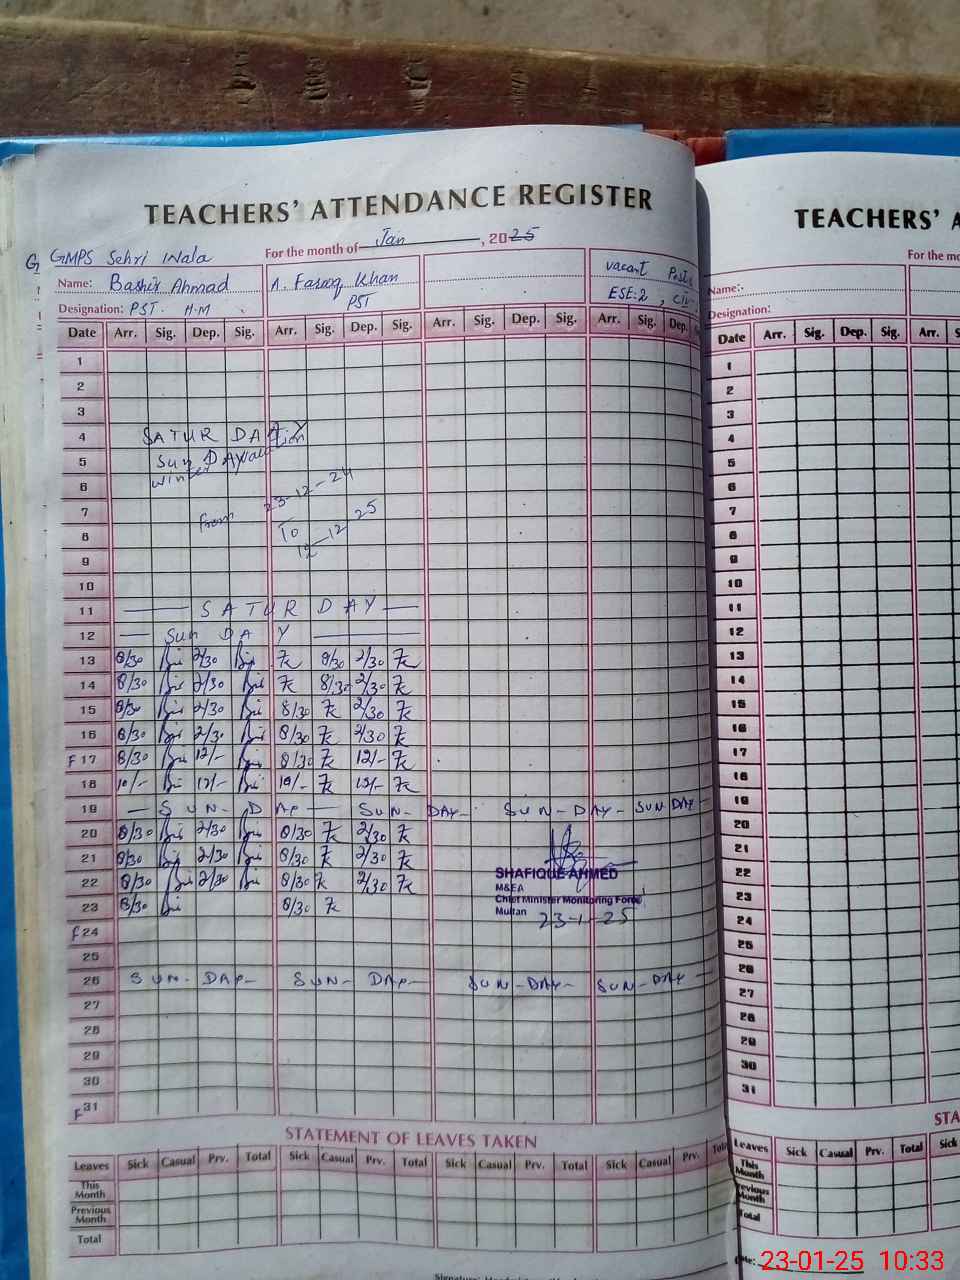 TEACHERS' ATTENDANCE REGISTER
GMPS Sehri Wala For the month of Jan, 2025
Name: Bashir Ahmad A. Farooq Khan vacant Posts
Designation: PST. H.M PST ESE:2,
Date Arr. Sig. Dep. Sig. Arr. Sig. Dep. Sig. Arr. Sig. Dep. Sig. Arr. Sig. Dep.
1
2
3
4 SATUR DAY
5 Sun DAY
6 winter vacation
7 From 23-12-24
8 To
9 12-12 25
10
11 SATUR DAY
12 Sun DAY
13 8/30 2/30 8/30 2/30
14 8/30 2/30 8/30 2/30
15 8/30 2/30 8/30 2/30
16 8/30 2/30 8/30 2/30
F 17 8/30 12/- 8/30 12/-
18 10/- 12/- 10/- 12/-
19 - SUN - DAY - SUN - DAY - SUN - DAY - SUN DAY -
20 8/30 2/30 8/30 2/30
21 8/30 2/30 8/30 2/30
22 8/30 2/30 8/30 2/30
23 8/30 8/30
F 24
25
26 SUN - DAY - SUN - DAY - SUN - DAY - SUN - DAY -
27
28
29
30
F 31
SHAFIQUE AHMED
M&EA
Chief Minister Monitoring Force
Multan 23-1-25
STATEMENT OF LEAVES TAKEN
Leaves Sick Casual Prv. Total Sick Casual Prv. Total Sick Casual Prv. Total Sick Casual Prv. Total
This Month
Previous Month
Total
TEACHERS'
For the mo
Name:
Designation:
Date Arr. Sig. Dep. Sig. Arr.
1
2
3
4
5
6
7
8
9
10
11
12
13
14
15
16
17
18
19
20
21
22
23
24
25
26
27
28
29
30
31
STA
Leaves Sick Casual Prv. Total Sick
This Month
Previous Month
Total
23-01-25 10:33